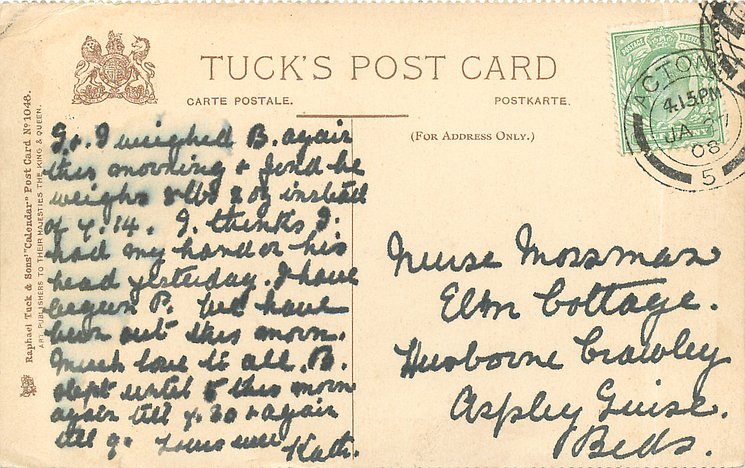 TUCK'S POST CARD
CARTE POSTALE. POSTKARTE.
(FOR ADDRESS ONLY.)
Raphael Tuck & Sons' "Calendar" Post Card Nº 1048.
ART PUBLISHERS TO THEIR MAJESTIES THE KING & QUEEN.
POSTAGE
ACTON
4.15 PM
JA 27
08
5
I weighed B. again
this morning + find he
weighs 8 lbs 2 oz instead
of 7.14. I thinks I
had my hand on his
head yesterday. I have
begun P. We have
been out this morn.
Much love to all. B.
slept until 5 this morn
again till 7.30 + again
till 9. Yours ever
Kath.
Nurse Mossman
Elm Cottage.
Husborne Crawley
Aspley Guise.
Beds.